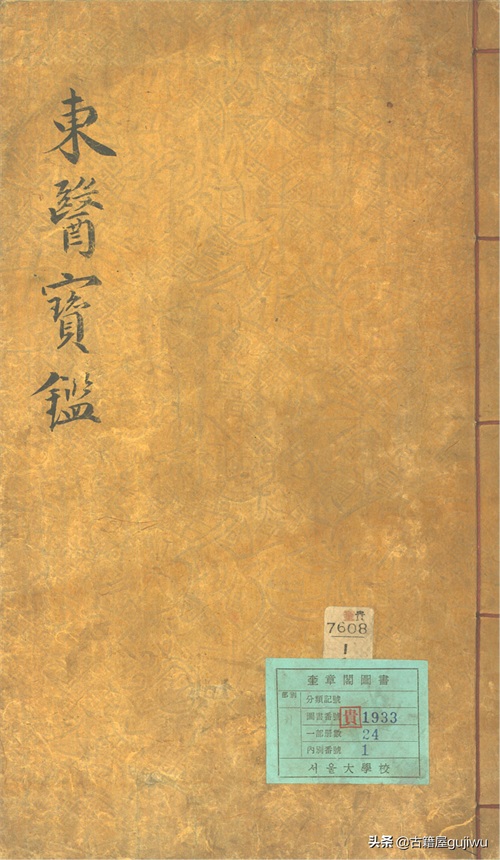 東醫寶鑑
貴
7608
1
奎章閣圖書
分類記號
圖書番號 貴 1933
一部冊數 24
內別番號 1
서울大學校
头条 @古籍屋gujiwu